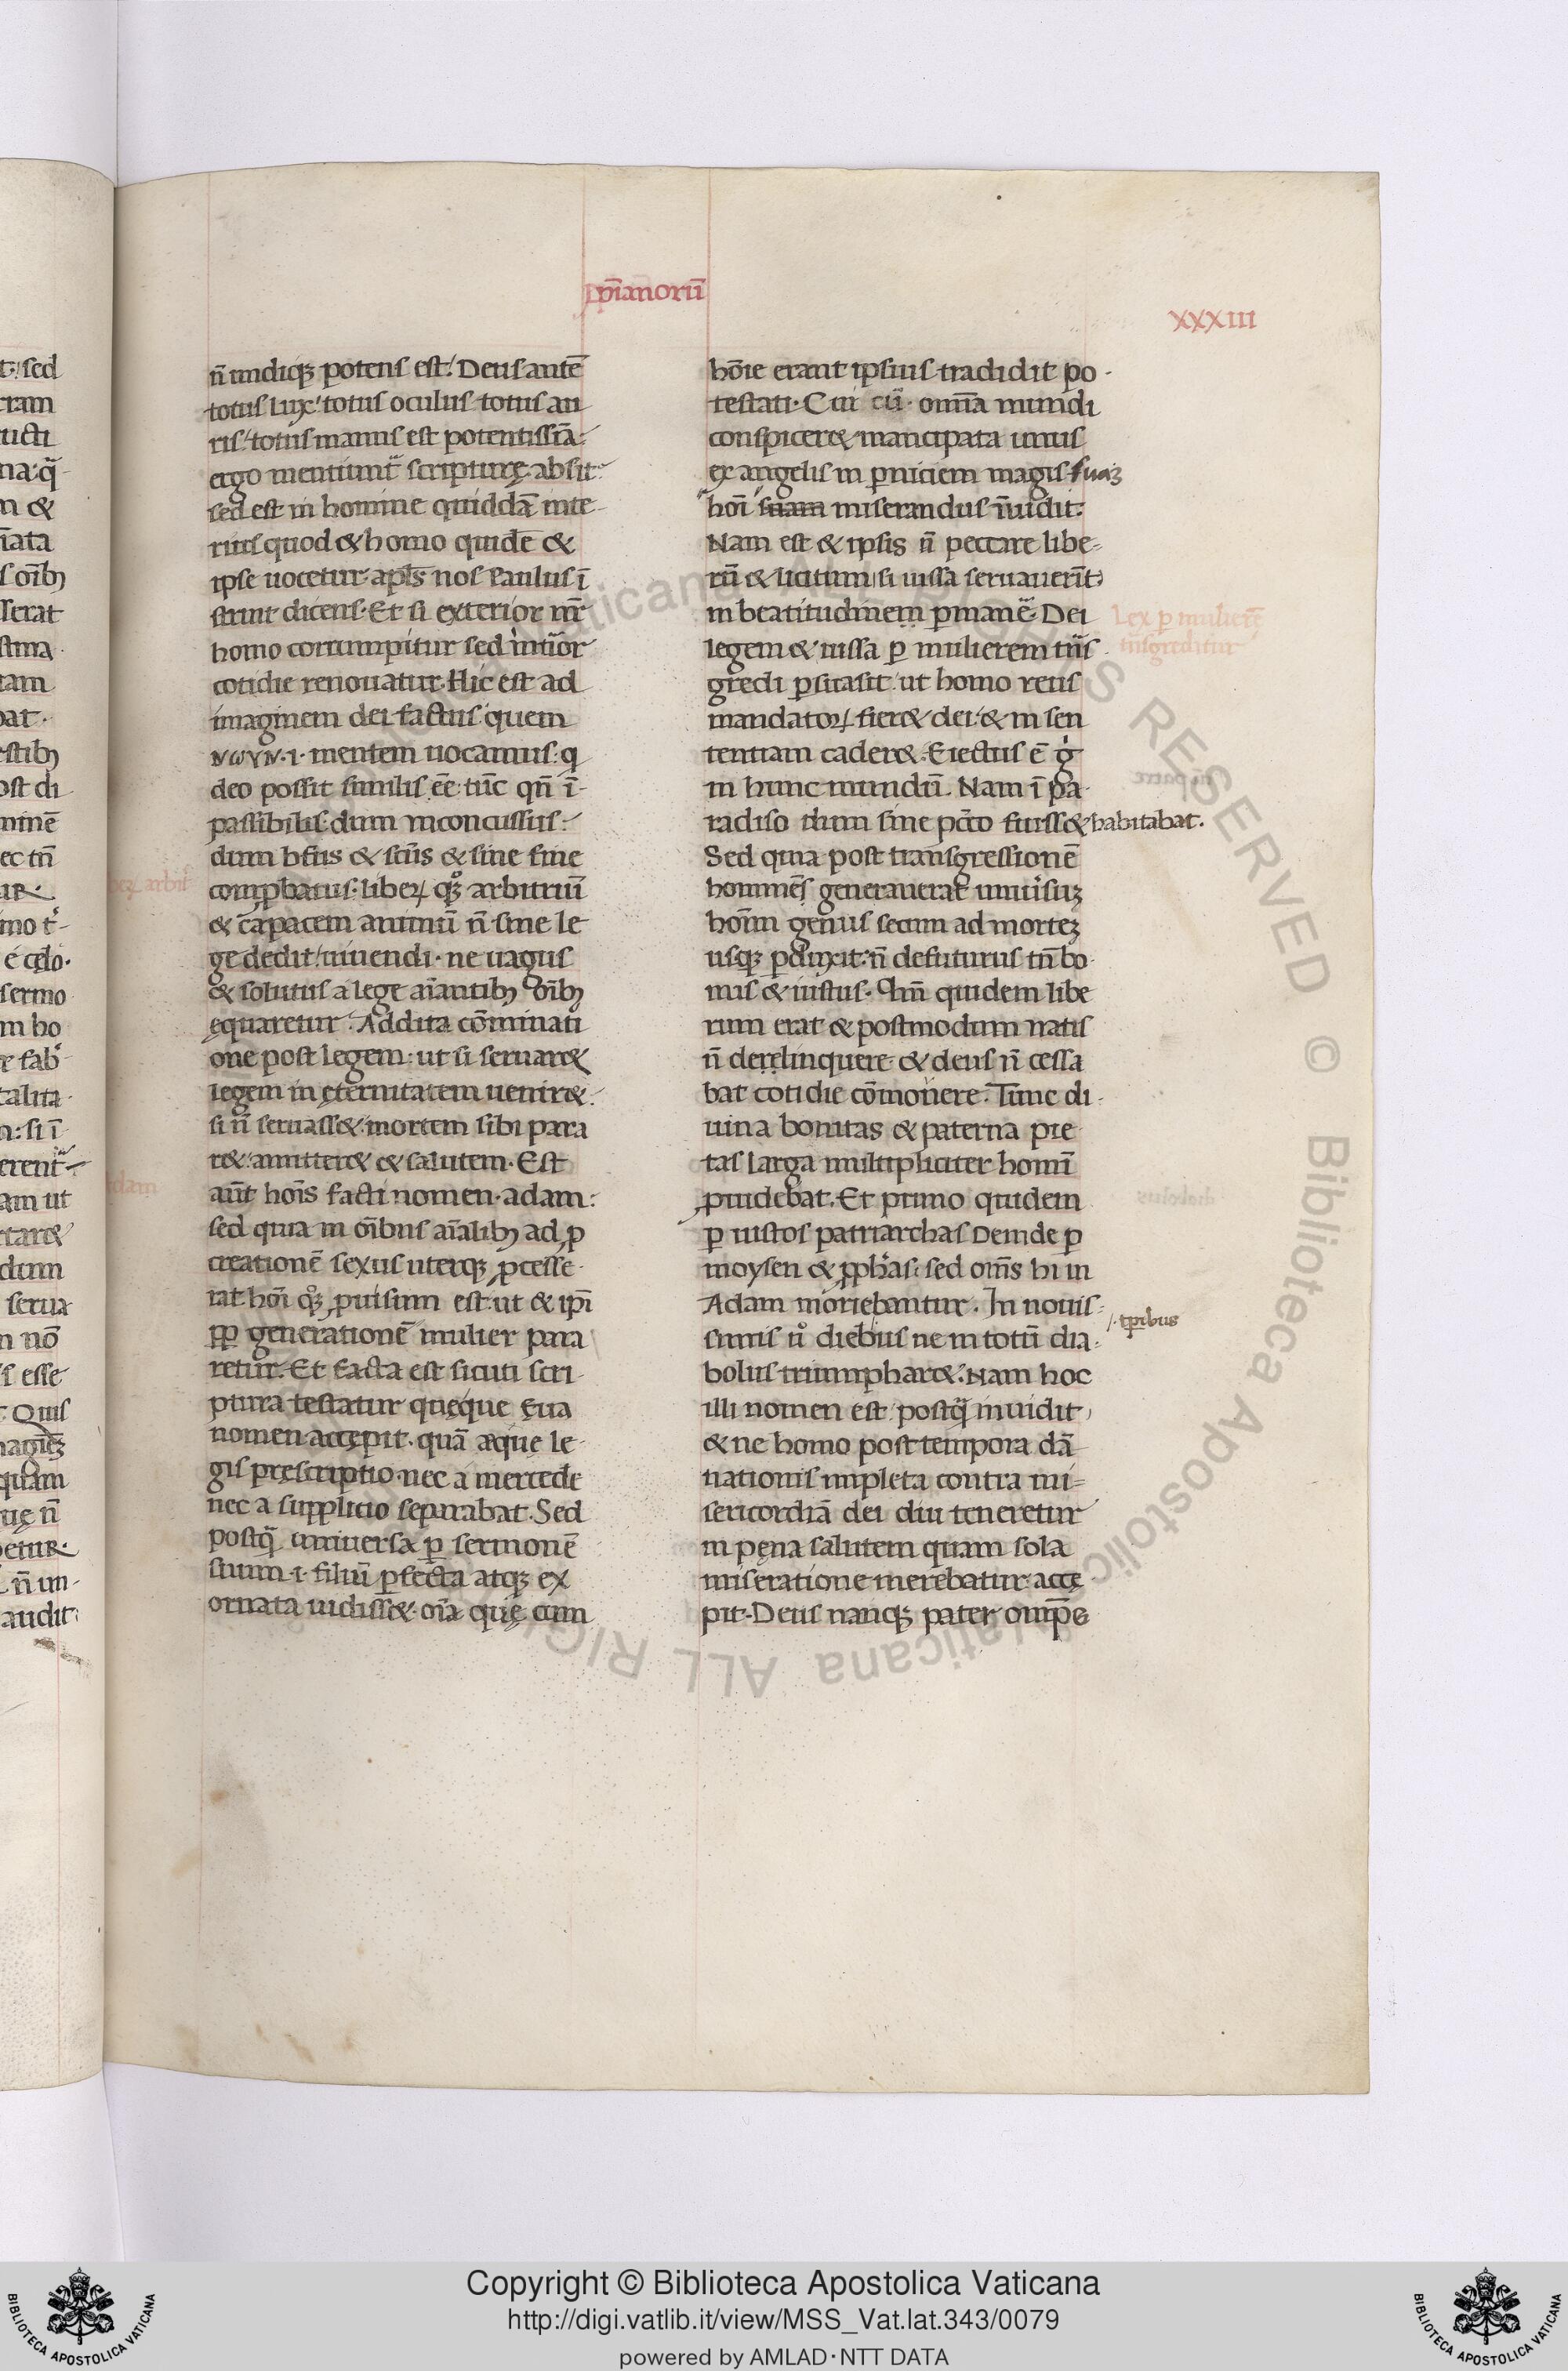 p̄ianorū
XXXIII
n̄ undiqꝫ potens est. Deus antē
totus lux. totus oculus totus au
ris. totus manus est potentissīa.
ergo mentiunt᷑ scripturę. absit.
sed est in homine quiddā inte-
rius quod & homo quidē &
ipse uocetur. apl̄s nos Paulus ī
struit dicens. Et si exterior nr̄
homo corrumpitur sed int᷑ior
cotidie renouatur. Hic est ad
imaginem dei factus quem
NωYN .i. mentem uocamus. q
deo possit similis eē. tūc qn̄ ī-
passibilis. dum inconcussus.
dum bt̄us & sc̄us & sine fine
comꝓbatus. liberꝝ qꝫ̊ arbitriū
& capacem animū n̄ sine le
ge dedit uiuendi. ne uagus
& solutus a lege aīantibꝫ oībꝫ
ęquaretur. Addita cōminati
one post legem. ut si seruar&
legem in ęternitatem uenir&.
si n̄ seruass& mortem sibi para
r&. amitter& & salutem. Est
aūt hoīs facti nomen. adam.
sed quia in oībus aīalibꝫ ad ꝓ
creationē sexus uterqꝫ ꝓcesse-
rat hoī qꝫ̊ ꝓuisum est. ut & ipī
ꝓꝑ generationē mulier para
retur. Et facta est sicuti scri-
ptura testatur quęque Eua
nomen accępit. quā æque le-
gis pręscriptio. nec a mercede
nec a supplicio separabat. Sed
postq̄ uniuersa ꝑ sermonē
suum .i. filiū ꝑfecta atqꝫ ex
ornata uidiss&. oīa quę cum
hoīe erant ipsius tradidit po-
testati. Cui cū omīa mundi
conspicer& mancipata unus
ex angelis in ꝑniciem magis suaꝫ
hoī suam miserandus īuidit.
Nam est & ipsis n̄ peccare libe-
rū & licitum si iussa seruauerīt
in beatitudinem ꝑmanē. Dei
legem & iussa ꝑ mulierem tn̄s
gredi ꝑsuasit. ut homo reus
mandatoꝝ fier& dei. & in sen
tentiam cader&. Eiectus ē g̊
in hunc mundū. Nam ī pa-
radiso dum sine pc̄c̄o fuiss& habitabat.
Sed quia post transgressionē
homines generauerat uniuersuꝫ
hoīm genus secum ad morteꝫ
usqꝫ ꝑduxit. n̄ defuturus tn̄ bo
nus & iustus. Illi quidem libe
rum erat & postmodum natis
n̄ derelinquere. & deus n̄ cessa
bat cotidie cōmonere. Tunc di-
uina bonitas & paterna pie
tas larga multipliciter homī
ꝓuidebat. Et primo quidem
ꝑ iustos patriarchas Deinde ꝑ
moysen & ꝓph̄as. sed omīs hi in
Adam moriebantur. In nouis-
simis ů diebus ne in totū dia-
bolus triumphar&. Nam hoc
illi nomen est postq̄ inuidit
& ne homo post tempora dā
nationis impleta contra mi-
sericordiā dei diu teneretur
in pęna salutem quam sola
miseratione merebatur accę
pit. Deus nanqꝫ pater omp̄s
Lex ꝑ mulierē
tn̄sgreditur
/. tꝑibus
Copyright © Biblioteca Apostolica Vaticana
http://digi.vatlib.it/view/MSS_Vat.lat.343/0079
powered by AMLAD·NTT DATA